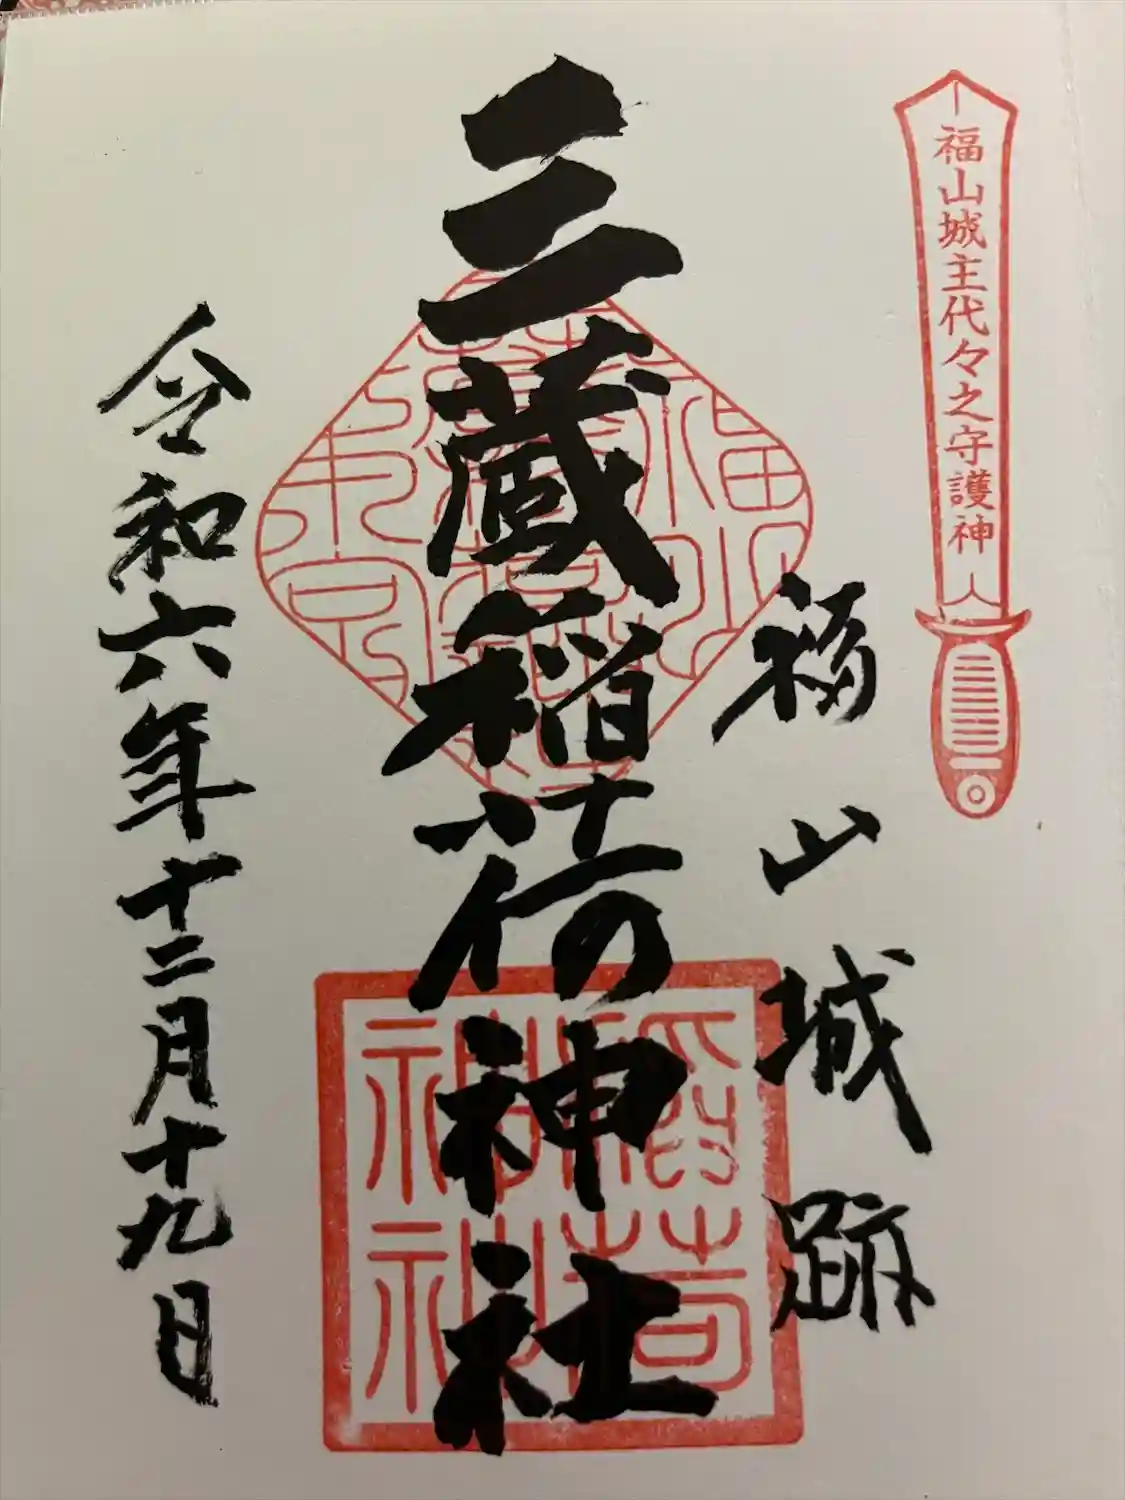 福山城主代々之守護神
福山城跡
三蔵稲荷神社
令和六年十二月十九日
稲荷
神社